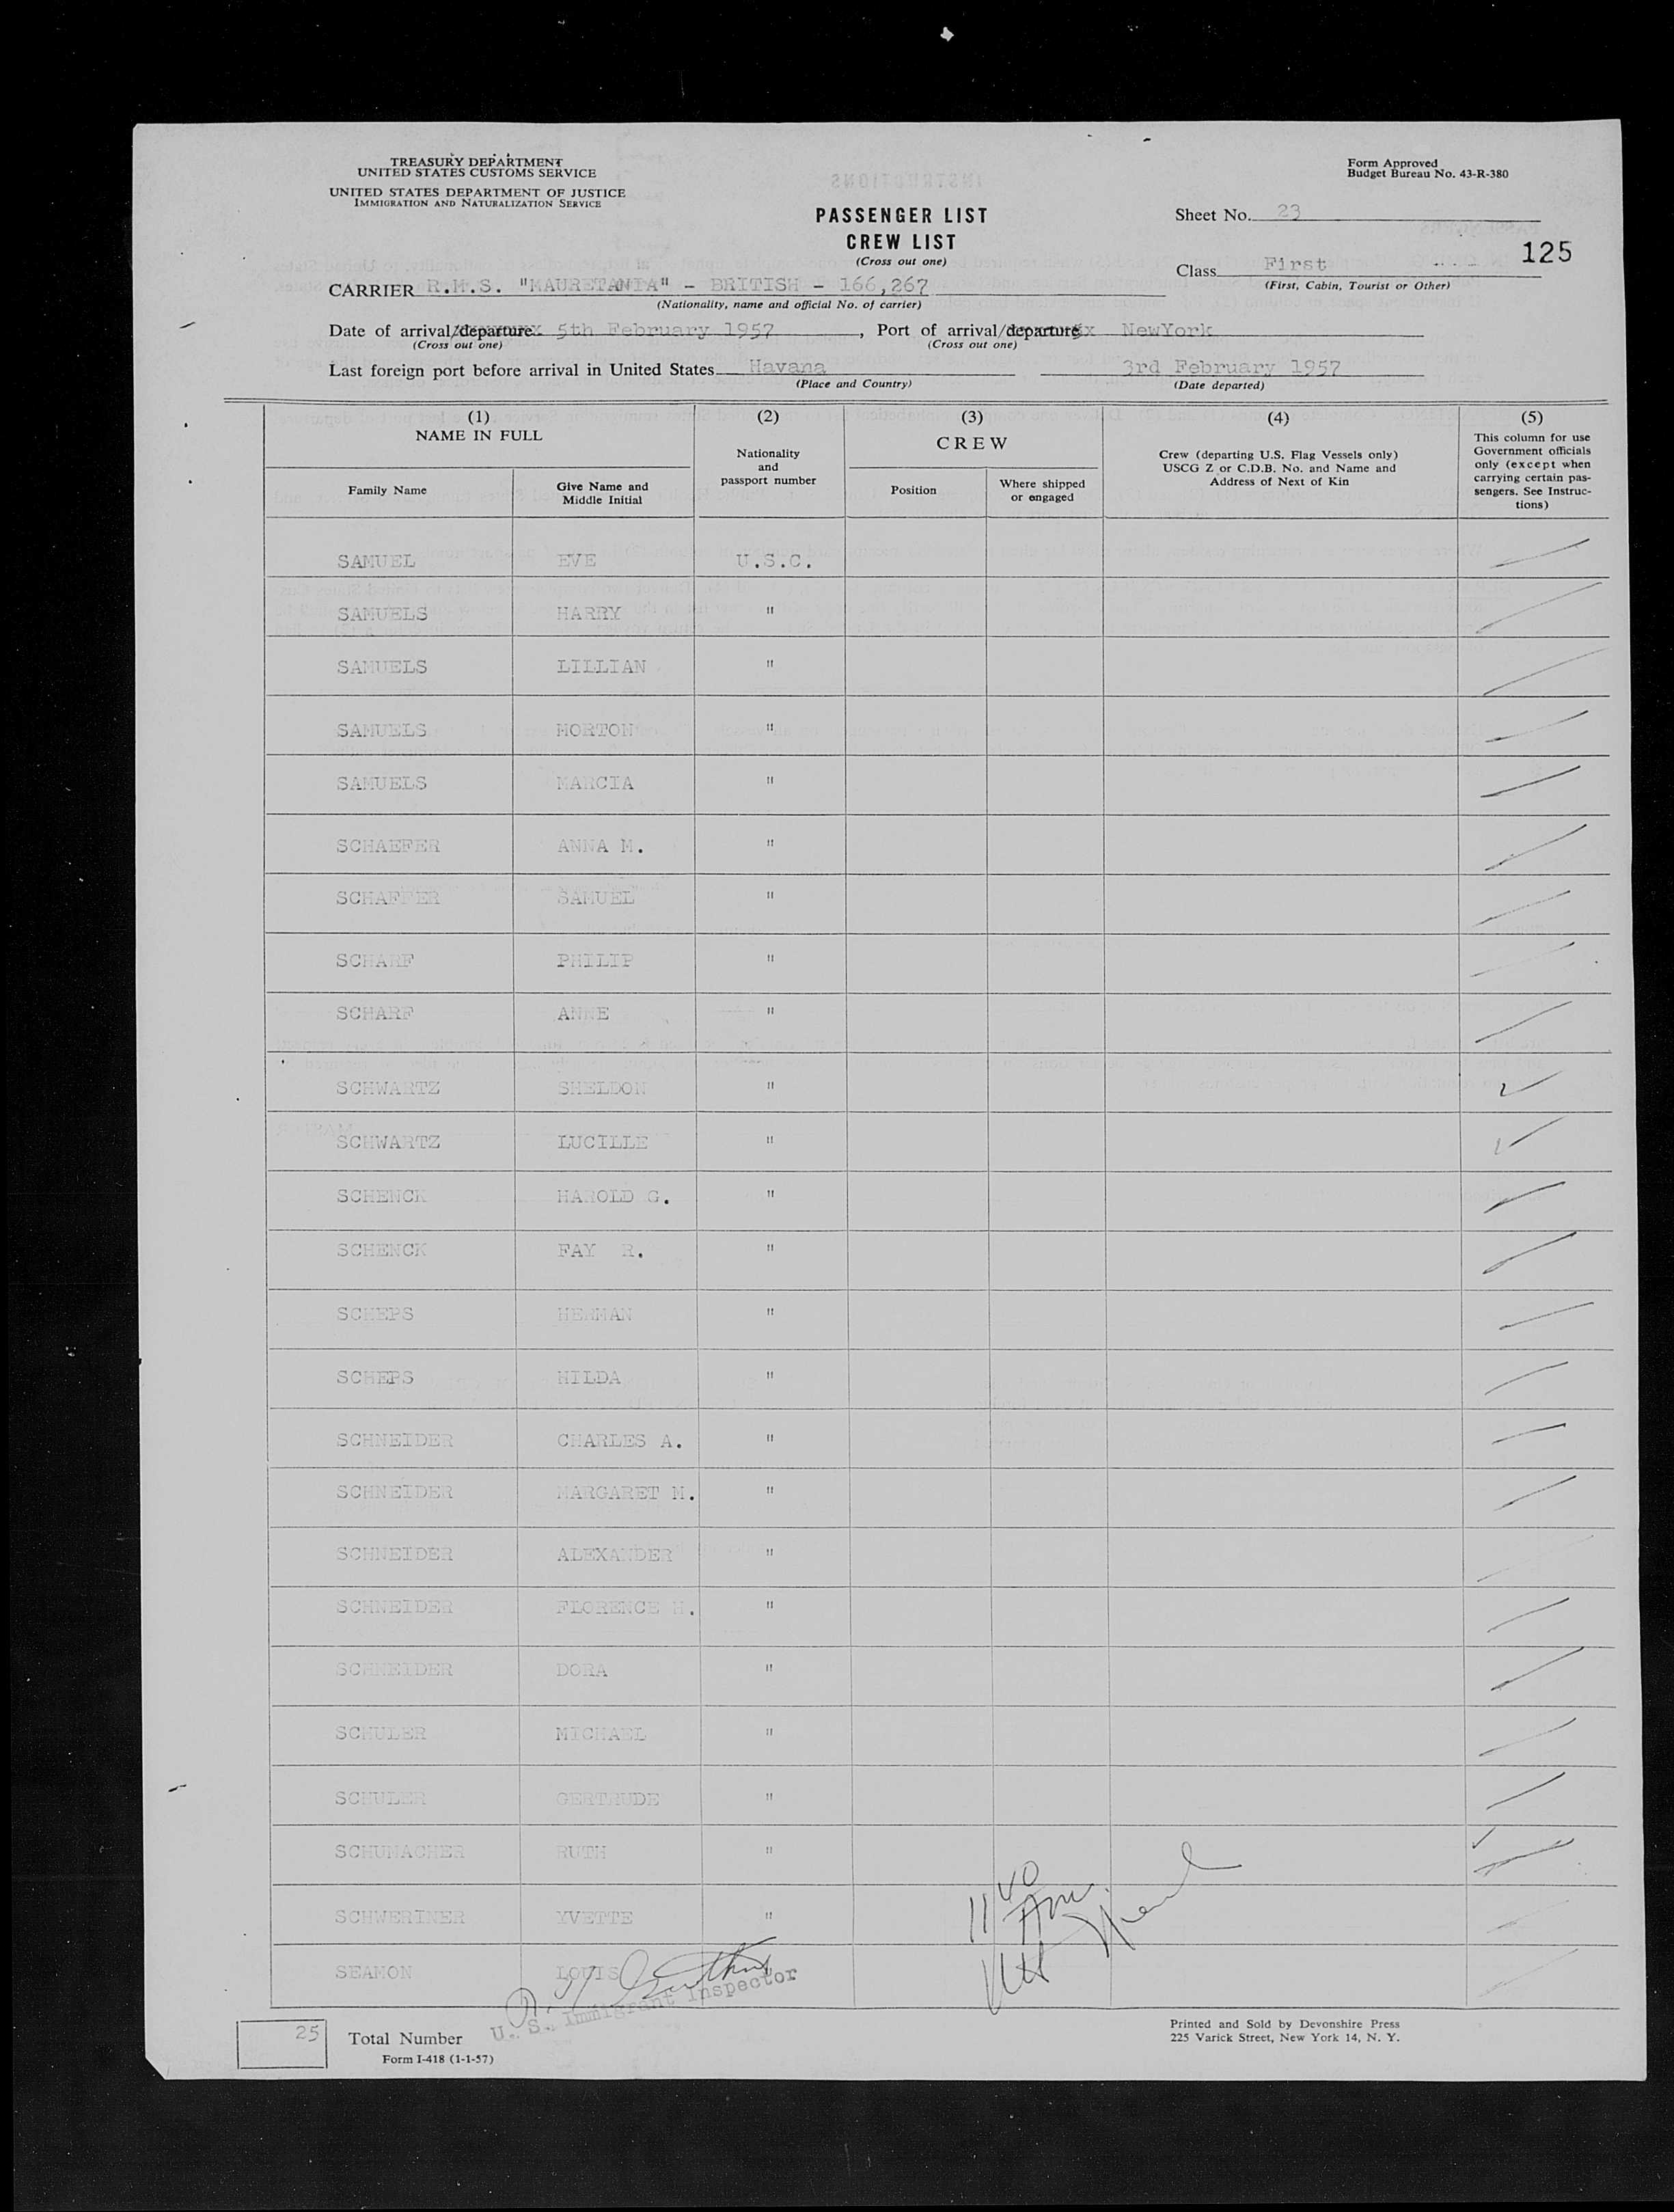 TREASURY DEPARTMENT
UNITED STATES CUSTOMS SERVICE
UNITED STATES DEPARTMENT OF JUSTICE
IMMIGRATION AND NATURALIZATION SERVICE
Form Approved
Budget Bureau No. 43-R-380
PASSENGER LIST
CREW LIST
(Cross out one)
Sheet No. 23
125
Class First
(First, Cabin, Tourist or Other)
CARRIER R.M.S. "MAURETANIA" - BRITISH - 166,267
(Nationality, name and official No. of carrier)
Date of arrival/departure 5th February 1957, Port of arrival/departure NewYork
(Cross out one) (Cross out one)
Last foreign port before arrival in United States Havana 3rd February 1957
(Place and Country) (Date departed)
(1) (2) (3) (4) (5)
NAME IN FULL
Family Name
Give Name and
Middle Initial
Nationality
and
passport number
CREW
Position
Where shipped
or engaged
Crew (departing U.S. Flag Vessels only)
USCG Z or C.D.B. No. and Name and
Address of Next of Kin
This column for use
Government officials
only (except when
carrying certain pas-
sengers. See Instruc-
tions)
SAMUEL EVE U.S.C.
SAMUELS HARRY "
SAMUELS LILLIAN "
SAMUELS MORTON "
SAMUELS MARCIA "
SCHAEFER ANNA M. "
SCHAFFER SAMUEL "
SCHARF PHILIP "
SCHARF ANNE "
SCHWARTZ SHELDON "
SCHWARTZ LUCILLE "
SCHENCK HAROLD G. "
SCHENCK FAY R. "
SCHEPS HERMAN "
SCHEPS HILDA "
SCHNEIDER CHARLES A. "
SCHNEIDER MARGARET M. "
SCHNEIDER ALEXANDER "
SCHNEIDER FLORENCE H. "
SCHNEIDER DORA "
SCHULER MICHAEL "
SCHULER GERTRUDE "
SCHUMACHER RUTH "
SCHWERINER YVETTE "
SEAMON LOUIS
1140
Am
U. S. Immigrant Inspector
25 Total Number
Form I-418 (1-1-57)
Printed and Sold by Devonshire Press
225 Varick Street, New York 14, N. Y.